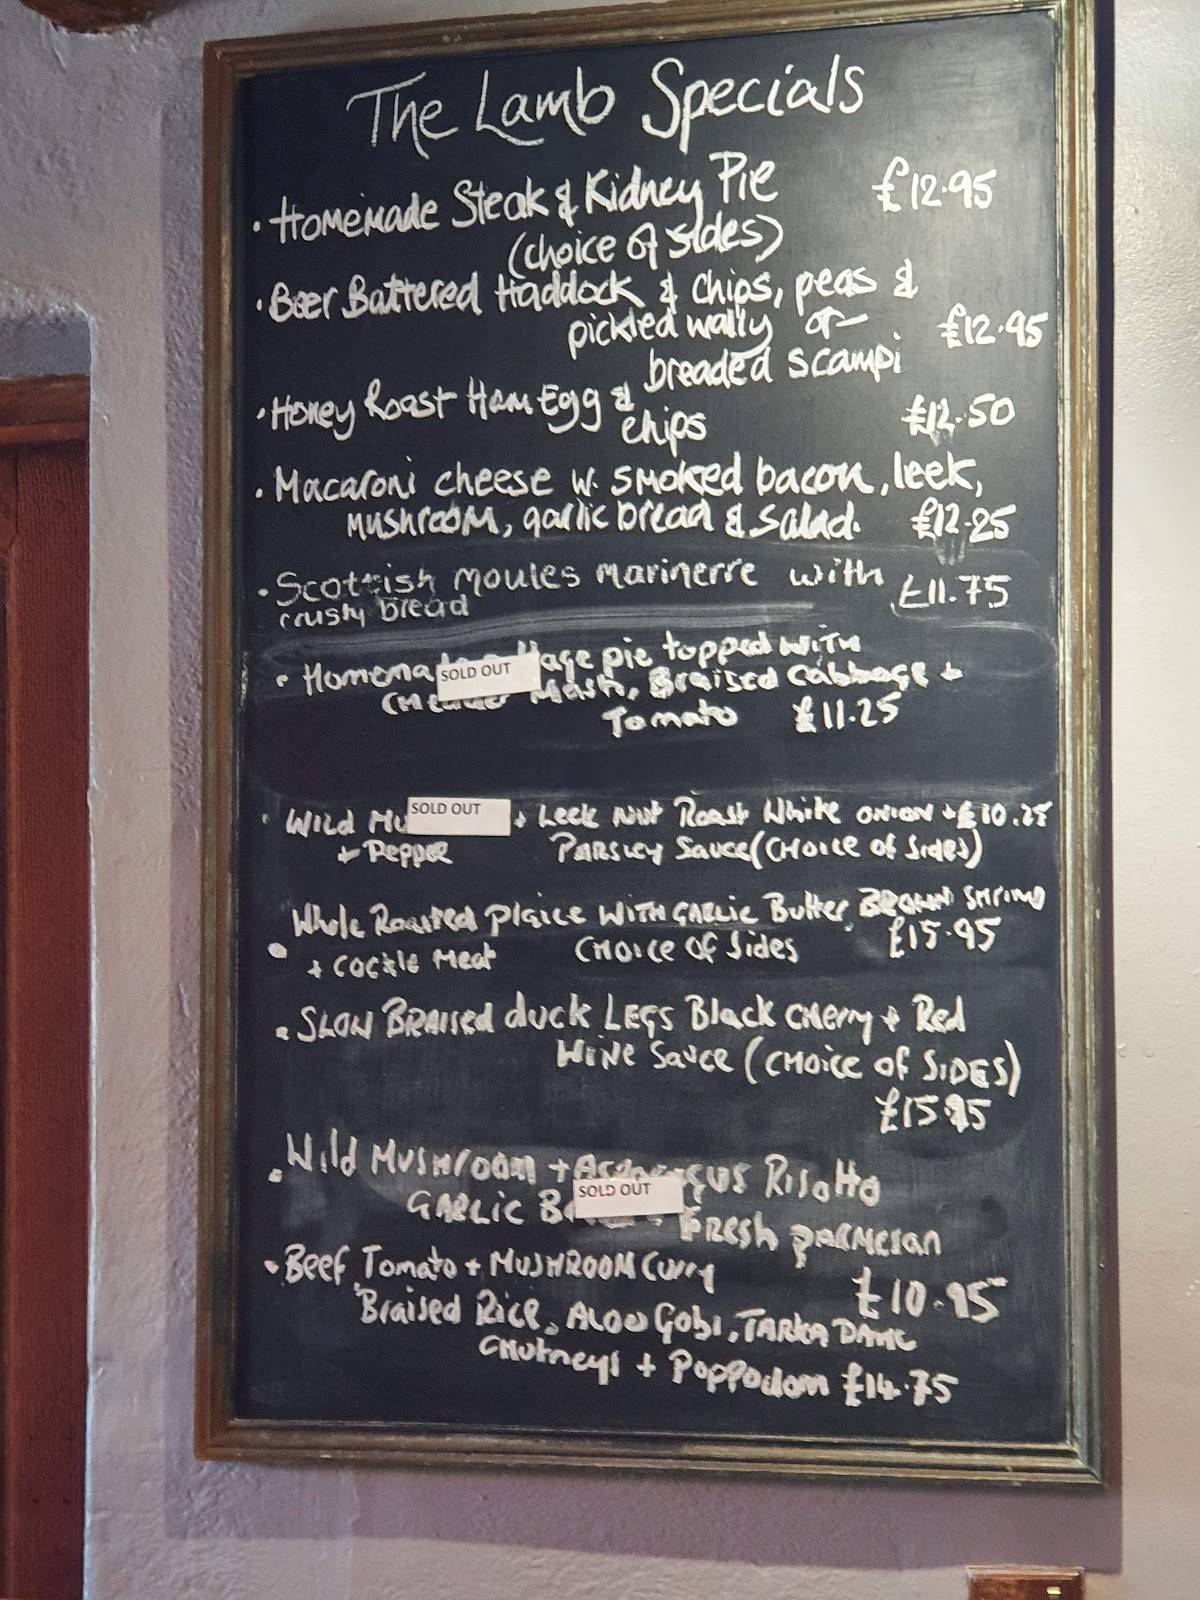 The Lamb Specials
· Homemade Steak & Kidney Pie £12.95
(choice of sides)
· Beer Battered Haddock & chips, peas &
pickled wally or £12.95
breaded scampi
· Honey Roast Ham Egg &
chips £12.50
· Macaroni cheese w. smoked bacon, leek,
mushroom, garlic bread & salad. £12.25
· Scottish moules marinerre with £11.75
crusty bread
· SOLD OUT pie topped with
Mash, Braised Cabbage +
Tomato £11.25
· Wild SOLD OUT + Leek Nut Roast White onion + £10.25
+ Pepper Parsley Sauce (choice of sides)
Whole Roasted Plaice with garlic Butter, Brown Shrimp
· + cockle meat choice of sides £15.95
· Slow Braised duck Legs Black cherry + Red
Wine Sauce (choice of sides)
£15.95
· Wild Mushroom + Asparagus Risotto
Garlic SOLD OUT Fresh parmesan
£10.95
· Beef, Tomato + Mushroom Curry
Braised Rice, Aloo Gobi, Tarka
chutneys + Poppodom £14.75